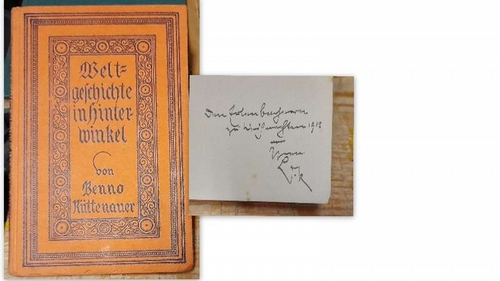 Welt-
geschichte
in Hinter-
winkel
von
Benno
Rüttenauer
zu Weihnachten 1918
von